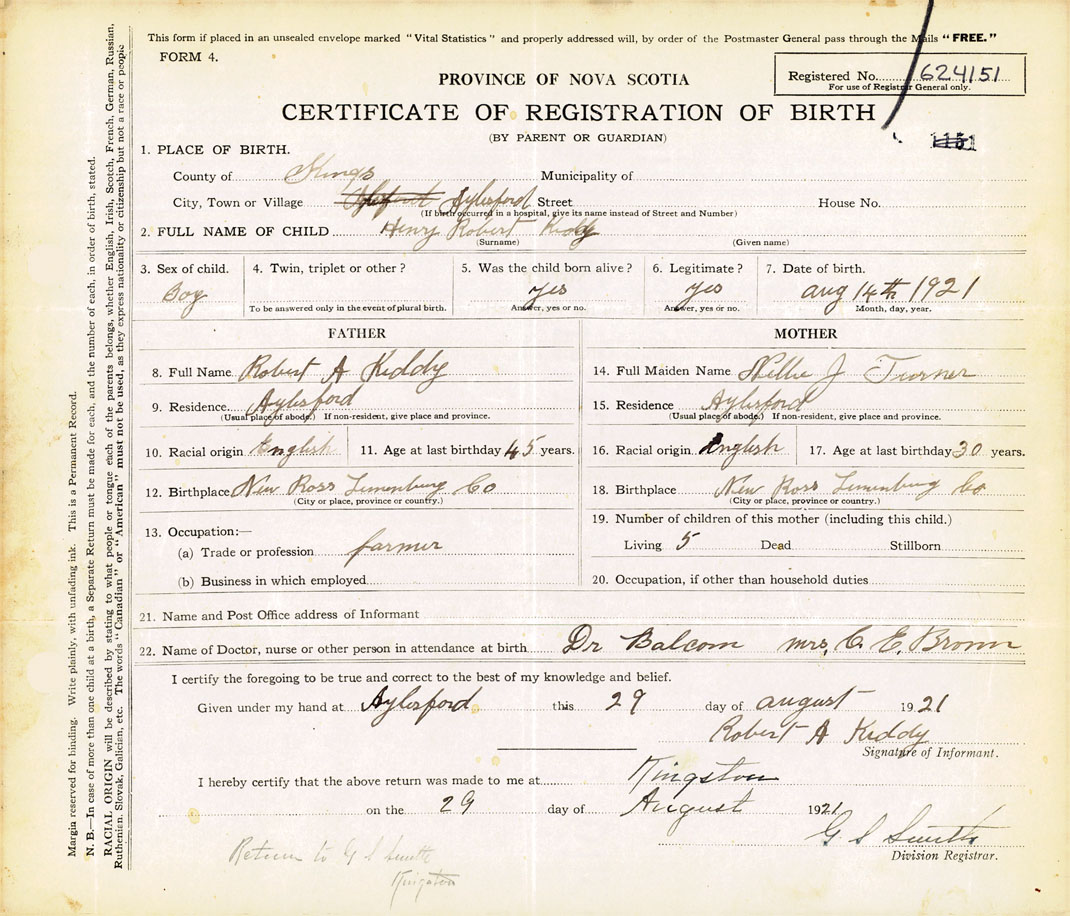 This form if placed in an unsealed envelope marked "Vital Statistics" and properly addressed will, by order of the Postmaster General pass through the Mails "FREE."
FORM 4.
PROVINCE OF NOVA SCOTIA
Registered No. 624151
For use of Registrar General only.
CERTIFICATE OF REGISTRATION OF BIRTH
(BY PARENT OR GUARDIAN)
1. PLACE OF BIRTH.
County of Kings Municipality of
City, Town or Village Aylesford Street House No.
(If birth occurred in a hospital, give its name instead of Street and Number)
2. FULL NAME OF CHILD Henry Robert Kiddy
(Surname) (Given name)
3. Sex of child. 4. Twin, triplet or other? 5. Was the child born alive? 6. Legitimate? 7. Date of birth.
Boy yes yes aug 14th 1921
To be answered only in the event of plural birth. Answer, yes or no. Answer, yes or no. Month, day, year.
FATHER MOTHER
8. Full Name Robert A Kiddy 14. Full Maiden Name Nellie J Turner
9. Residence Aylesford 15. Residence Aylesford
(Usual place of abode.) If non-resident, give place and province. (Usual place of abode.) If non-resident, give place and province.
10. Racial origin English 11. Age at last birthday 45 years. 16. Racial origin English 17. Age at last birthday 30 years.
12. Birthplace New Ross Lunenburg Co 18. Birthplace New Ross Lunenburg Co
(City or place, province or country.) (City or place, province or country.)
13. Occupation:— 19. Number of children of this mother (including this child.)
(a) Trade or profession farmer Living 5 Dead Stillborn
(b) Business in which employed 20. Occupation, if other than household duties
21. Name and Post Office address of Informant
22. Name of Doctor, nurse or other person in attendance at birth Dr Balcom mrs, C. E. Brown
I certify the foregoing to be true and correct to the best of my knowledge and belief.
Given under my hand at Aylesford this 29 day of august 1921
Robert A Kiddy
Signature of Informant.
I hereby certify that the above return was made to me at Kingston
on the 29 day of August 1921
G S Smith
Division Registrar.
Return to G S Smith
Kingston
Margin reserved for binding. Write plainly, with unfading ink. This is a Permanent Record.
N. B.—In case of more than one child at a birth, a Separate Return must be made for each, and the number of each, in order of birth, stated.
RACIAL ORIGIN will be described by stating to what people or tongue each of the parents belongs, whether English, Irish, Scotch, French, German, Russian,
Ruthenian, Slovak, Galician, etc. The words "Canadian" or "American" must not be used, as they express nationality or citizenship but not a race or people